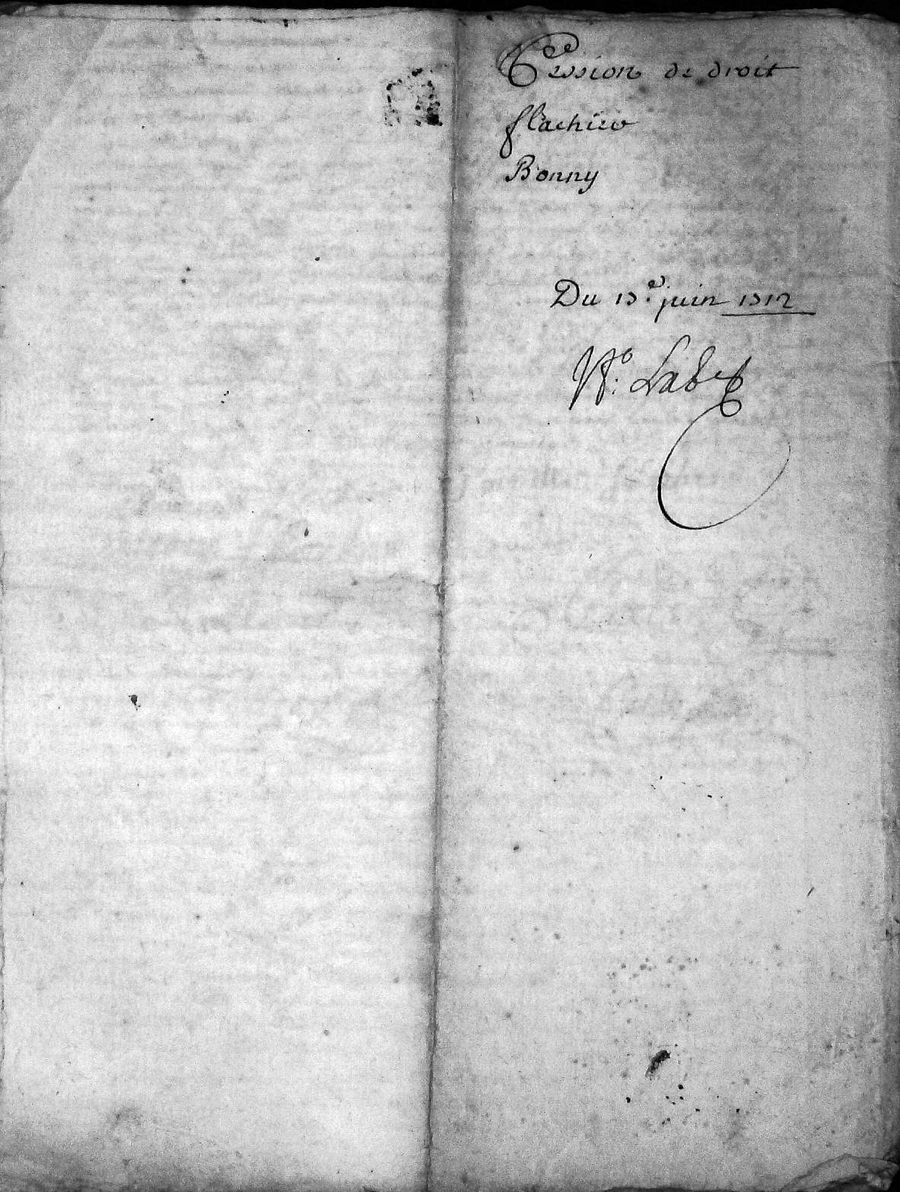 Cession de droit
flachire
Bonny
Du 13.e juin 1312
No: Labe